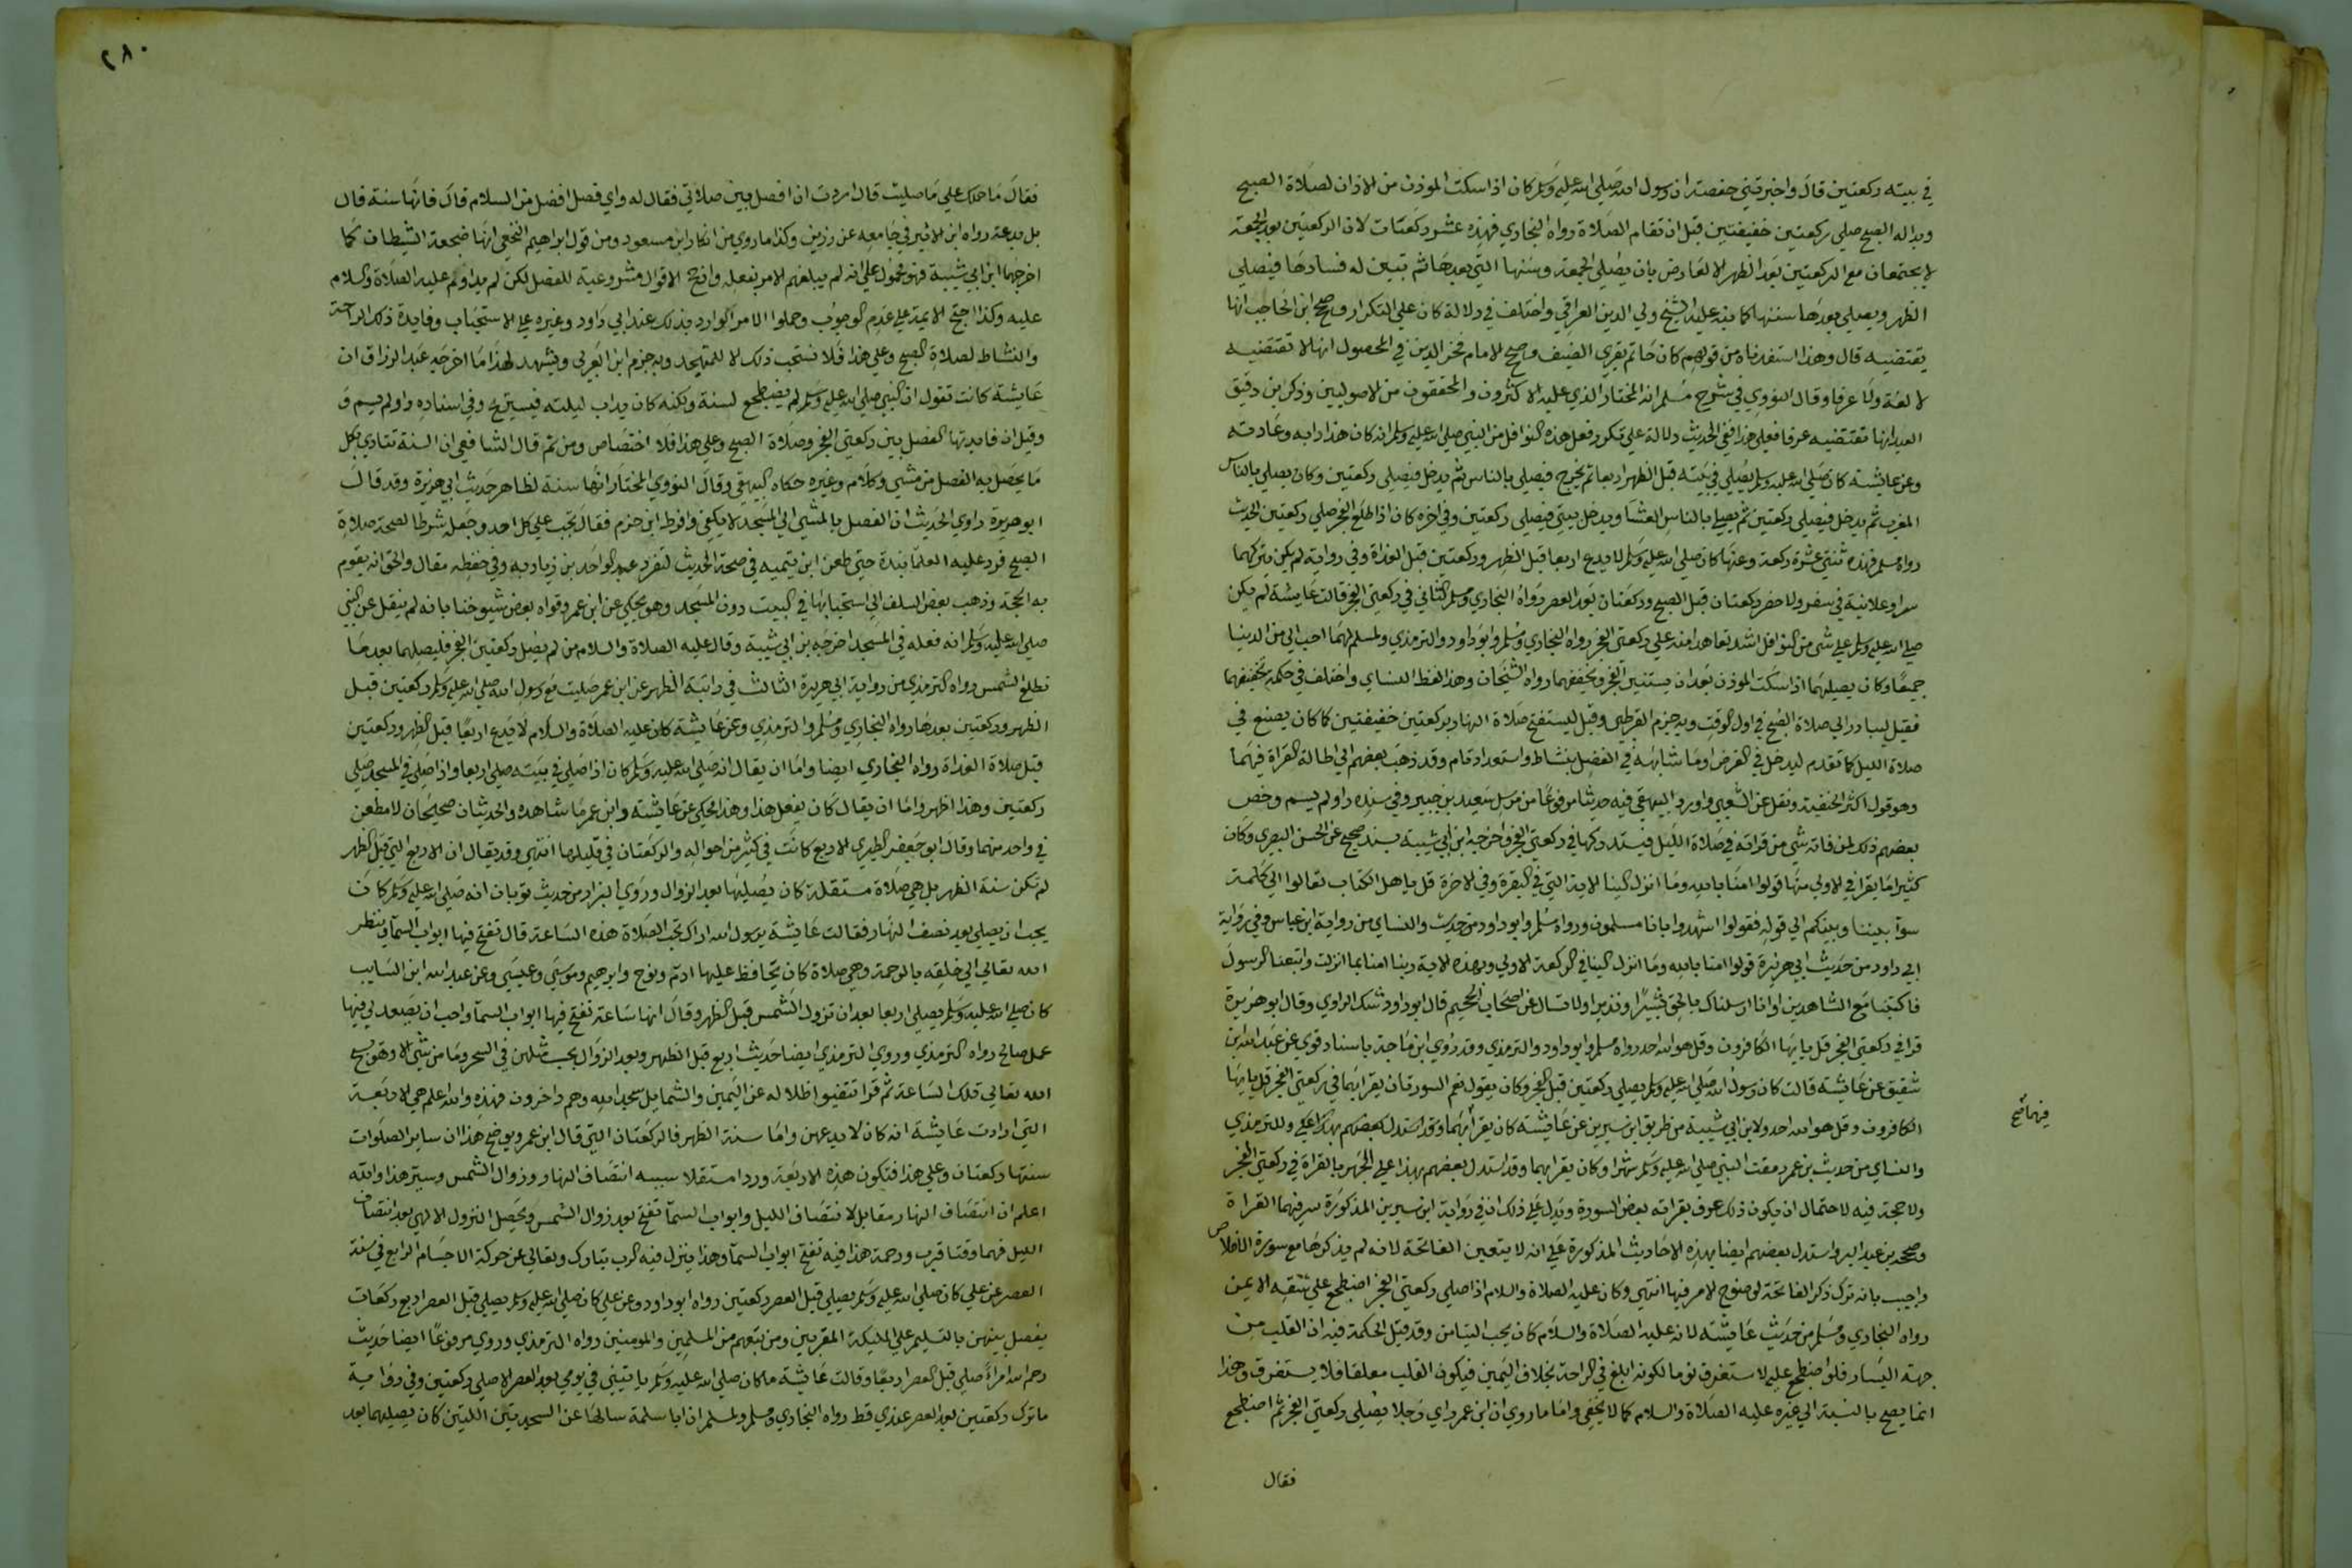 في بيته ركعتين قال واخبرتني حفصة ان رسول الله صلى الله عليه وسلم كان اذا سكت الموذن من الاذان لصلاة الصبح
وبدا له الصبح صلي ركعتين خفيفتين قبل ان تقام الصلاة رواه البخاري فهذه عشر ركعات لان الركعتين بعد الجمعة
لا يجتمعان مع الركعتين بعد الظهر الا لعارض بان يصلي الجمعة وسنتها التي بعدها ثم تبين له فسادها فيصلي
الظهر ويصلي بعدها سنتها كما نبه عليه الشيخ ولي الدين العراقي واختلف في دلالة كان علي التكرار وصحح ابن الحاجب انها
يقتضيه قال وهذا استفدناه من قولهم كان حاتم يقري الضيف وصحح الامام فخر الدين في المحصول انها لا تقتضيه
لا لغة ولا عرفا وقال النووي في شرح مسلم انه المختار الذي عليه الاكثرون والمحققون من الاصوليين وذكر ابن دقيق
العيد انها تقتضيه عرفا فعلي هذا ففي الحديث دلالة علي تكرر فعل هذه النوافل من النبي صلى الله عليه وسلم انه كان هذا دابه وعادته
وعن عايشة كان صلى الله عليه وسلم يصلي في بيته قبل الظهر اربعا ثم يخرج فيصلي بالناس ثم يدخل فيصلي ركعتين وكان يصلي بالناس
المغرب ثم يدخل فيصلي ركعتين ثم يصلي بالناس العشا ويدخل بيتي فيصلي ركعتين وفي اخره كان اذا طلع الفجر صلي ركعتين الحديث
رواه مسلم فهذه ثنتي عشرة ركعة وعنها كان صلى الله عليه وسلم لا يدع اربعا قبل الظهر وركعتين قبل الغداة وفي رواية لم يكن يتركهما
سرا وعلانية في سفر ولا حضر ركعتان قبل الصبح وركعتان بعد العصر رواه البخاري ومسلم الثاني في ركعتي الفجر قالت عايشة لم يكن
صلى الله عليه وسلم علي شي من النوافل اشد تعاهدا منه علي ركعتي الفجر رواه البخاري ومسلم وابو داود والترمذي ولمسلم لهما احب الي من الدنيا
جميعا وكان يصليهما اذا سكت الموذن بعد ان يستنير الفجر ويخففهما رواه الشيخان وهذا لفظ النساي واختلف في حكمة تخفيفهما
فقيل ليبادر الي صلاة الصبح في اول الوقت وبه جزم القرطبي وقيل ليستفتح صلاة النهار بركعتين خفيفتين كما كان يصنع في
صلاة الليل كما تقدم ليدخل في الفرض او ما شابهه في الفضل بنشاط واستعداد تام وقد ذهب بعضهم الي اطالة القراة فيهما
وهو قول اكثر الحنفية ونقل عن الشعبي واورد البيهقي فيه حديثا مرفوعا من مرسل سعيد بن جبير وفي سنده راو لم يسم وخص
بعضهم ذلك لمن فاته شي من قراته في صلاة الليل فيستدركها في ركعتي الفجر واخرجه ابن ابي شيبة بسند صحيح عن الحسن البصري وكان
كثيرا ما يقرا في الاولي منها قولوا امنا بالله وما انزل الينا الاية التي في البقرة وفي الاخرة قل يا اهل الكتاب تعالوا الي كلمة
سوا بيننا وبينكم الي قوله فقولوا اشهدوا بانا مسلمون ورواه مسلم وابو داود من حديث والنساي من رواية ابن عباس وفي رواية
ابي داود من حديث ابي هريرة قولوا امنا بالله وما انزل الينا في الركعة الاولي وبهذه الاية ربنا امنا بما انزلت واتبعنا الرسول
فاكتبنا مع الشاهدين او انا ارسلناك بالحق بشيرا ونذيرا ولا تسال عن اصحاب الجحيم قال ابو داود شك الراوي وقال ابو هريرة
قرا في ركعتي الفجر قل يا يها الكافرون وقل هو الله احد رواه مسلم وابو داود والترمذي وقد روي ابن ماجة باسناد قوي عن عبد الله ابن
شقيق عن عايشة قالت كان رسول الله صلى الله عليه وسلم يصلي ركعتين قبل الفجر وكان يقول نعم السورتان يقرا بهما في ركعتي الفجر قل يا يها
الكافرون وقل هو الله احد ولابن ابي شيبة من طريق ابن سيرين عن عايشة كان يقرا بهما وقد استدل بعضهم بهذا علي وللترمذي
والنساي من حديث بن عمر رمقت النبي صلى الله عليه وسلم شهرا وكان يقرا بهما وقد استدل بعضهم بهذا علي الجهر بالقراة في ركعتي الفجر
ولا حجة فيه لاحتمال ان يكون ذلك عرف بقراته بعض السورة ويدل علي ذلك ان في رواية ابن سيرين المذكورة يسر فيهما القراة
وصححه بن عبد البر واستدل بعضهم ايضا بهذه الاحاديث المذكورة علي انه لا يتعين الفاتحة لانه لم يذكرها مع سورة الاخلاص
واجيب بانه ترك ذكر الفاتحة لوضوح الامر فيها انتهي وكان عليه الصلاة والسلام اذا صلي ركعتي الفجر اضطجع علي شقه الايمن
رواه البخاري ومسلم من حديث عايشة لانه عليه الصلاة والسلام كان يحب التيامن وقد قيل الحكمة فيه ان القلب من
جهة اليسار فلو اضطجع عليه لاستغرق نوما لكونه ابلغ في الراحة بخلاف اليمين فيكون القلب معلقا فلا يستغرق وهذا
انما يصح بالنسبة الي غيره عليه الصلاة والسلام كما لا يخفي واما ما روي ان ابن عمر راي رجلا يصلي ركعتي الفجر ثم اضطجع
فقال
٢٨٠
فقال ما حملك علي ما صليت قال اردت ان افصل بين صلاتي فقال له واي فصل افضل من السلام قال فانها سنة قال
بل بدعة رواه ابن الاثير في جامعه عن رزين وكذا ما روي من انكار ابن مسعود ومن قول ابراهيم النخعي انها ضجعة الشيطان كما
اخرجهما ابن ابي شيبة فهو محمول علي انه لم يبلغهم الامر بفعله وارجح الاقوال مشروعيته للفصل لكن لم يداوم عليه الصلاة والسلام
عليه وكذا احتج الايمة علي عدم الوجوب وحملوا الامر الوارد بذلك عند ابي داود وغيره علي الاستحباب وفايدة ذلك الراحة
والنشاط لصلاة الصبح وعلي هذا فلا يستحب ذلك الا للمتهجد وبه جزم ابن العربي ويشهد لهذا ما اخرجه عبد الرزاق ان
عايشة كانت تقول ان النبي صلى الله عليه وسلم لم يضطجع لسنة ولكنه كان يداب ليلته فيستريح وفي اسناده راو لم يسم و
وقيل ان فايدتها الفصل بين ركعتي الفجر وصلاة الصبح وعلي هذا فلا اختصاص ومن ثم قال الشافعي ان السنة تتادي بكل
ما يحصل به الفصل من مشي وكلام وغيره حكاه البيهقي وقال النووي المختار انها سنة لظاهر حديث ابي هريرة وقد قال
ابو هريرة راوي الحديث ان الفصل بالمشي الي المسجد لا يكفي وافرط ابن حزم فقال يجب علي كل احد وجعله شرطا لصحة صلاة
الصبح فرد عليه العلما بعده حتي طعن ابن تيميه في صحة الحديث لتفرد عبد الواحد بن زياد به وفي حفظه مقال والحق انه يقوم
به الحجة وذهب بعض السلف الي استحبابها في البيت دون المسجد وهو محكي عن ابن عمر وقواه بعض شيوخنا بانه لم ينقل عن النبي
صلى الله عليه وسلم انه فعله في المسجد اخرجه بن ابي شيبة وقال عليه الصلاة والسلام من لم يصل ركعتي الفجر فليصلهما بعد ما
تطلع الشمس رواه الترمذي من رواية ابي هريرة الثالث في راتبة الظهر عن ابن عمر صليت مع رسول الله صلى الله عليه وسلم ركعتين قبل
الظهر وركعتين بعدها رواه البخاري ومسلم والترمذي وعن عايشة كان عليه الصلاة والسلام لا يدع اربعا قبل الظهر وركعتين
قبل صلاة الغداة رواه البخاري ايضا واما ان يقال انه صلى الله عليه وسلم كان اذا صلي في بيته صلي اربعا واذا صلي في المسجد صلي
ركعتين وهذا اظهر واما ان يقال كان يفعل هذا وهذا فحكي عن عايشة وابن عمر ما شاهده والحديثان صحيحان لا مطعن
في واحد منهما وقال ابو جعفر الطبري الاربع كانت في كثير من احواله والركعتان في قليلها انتهي وقد يقال ان الاربع التي قبل الظهر
لم تكن سنة الظهر بل هي صلاة مستقلة كان يصليها بعد الزوال وروي البزار من حديث ثوبان انه صلى الله عليه وسلم كان
يحب ان يصلي بعد نصف النهار فقالت عايشة يرسول الله اراك تحب الصلاة هذه الساعة قال تفتح فيها ابواب السما وينظر
الله تعالي الي خلقه بالرحمة وهي صلاة كان يحافظ عليها ادم ونوح وابرهيم وموسي وعيسي وعن عبد الله ابن السايب
كان صلى الله عليه وسلم يصلي اربعا بعد ان تزول الشمس قبل الظهر وقال انها ساعة تفتح فيها ابواب السما واحب ان يصعد لي فيها
عمل صالح رواه الترمذي وروي الترمذي ايضا حديث اربع قبل الظهر وبعد الزوال يحسب بمثلهن في السحر وما من شي الا وهو يسبح
الله تعالي تلك الساعة ثم قرا تتفيو اظلاله عن اليمين والشمايل سجدا لله وهم داخرون فهذه والله اعلم هي الاربعة
التي ارادت عايشة انه كان لا يدعهن واما سنة الظهر فالركعتان التي قال ابن عمر ويوضح هذا ان ساير الصلوات
سنتها ركعتان وعلي هذا فتكون هذه الاربعة وردا مستقلا سببه انتصاف النهار وزوال الشمس وسر هذا والله
اعلم ان انتصاف النهار مقابل لانتصاف الليل وابواب السما تفتح بعد زوال الشمس ويحصل النزول الالهي بعد انتصاف
الليل فهما وقتا قرب ورحمة هذا فيه تفتح ابواب السما وهذا ينزل فيه الرب تبارك وتعالي عن حركة الاجسام الرابع في سنة
العصر عن علي كان صلى الله عليه وسلم يصلي قبل العصر ركعتين رواه ابو داود وعن علي كان صلى الله عليه وسلم يصلي قبل العصر اربع ركعات
يفصل بينهن بالتسليم علي المليكة المقربين ومن تبعهم من المسلمين والمومنين رواه الترمذي وروي مرفوعا ايضا حديث
رحم الله امراء صلي قبل العصر اربعا وقالت عايشة ما كان صلى الله عليه وسلم ياتيني في يومي بعد العصر الا صلي ركعتين وفي رواية
ما ترك ركعتين بعد العصر عندي قط رواه البخاري ومسلم ولمسلم ان ابا سلمة سالها عن السجدتين اللتين كان يصليهما بعد